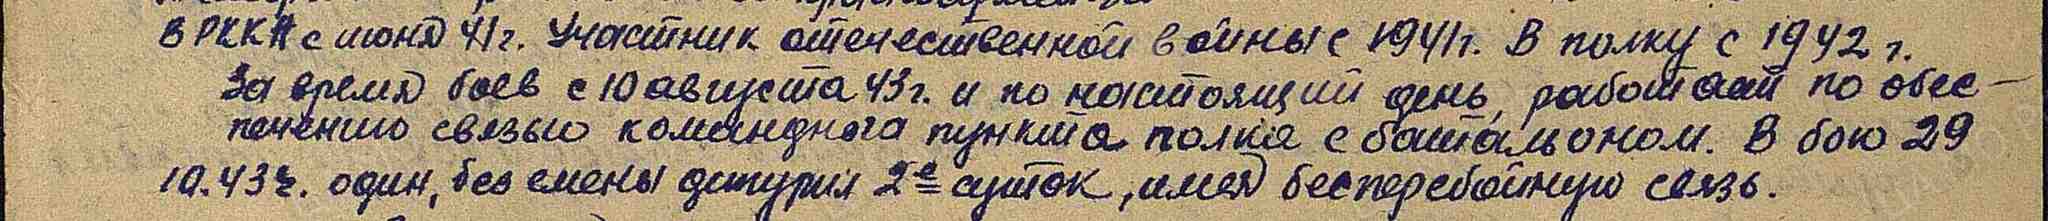 В РККА с июня 41г. Участник отечественной войны с 1941г. В полку с 1942 г.
За время боев с 10 августа 43г. и по настоящий день, работает по обес-
печению связью командного пункта полка с батальоном. В бою 29
10.43г. один, без смены дежурил 2е суток, имея бесперебойную связь.